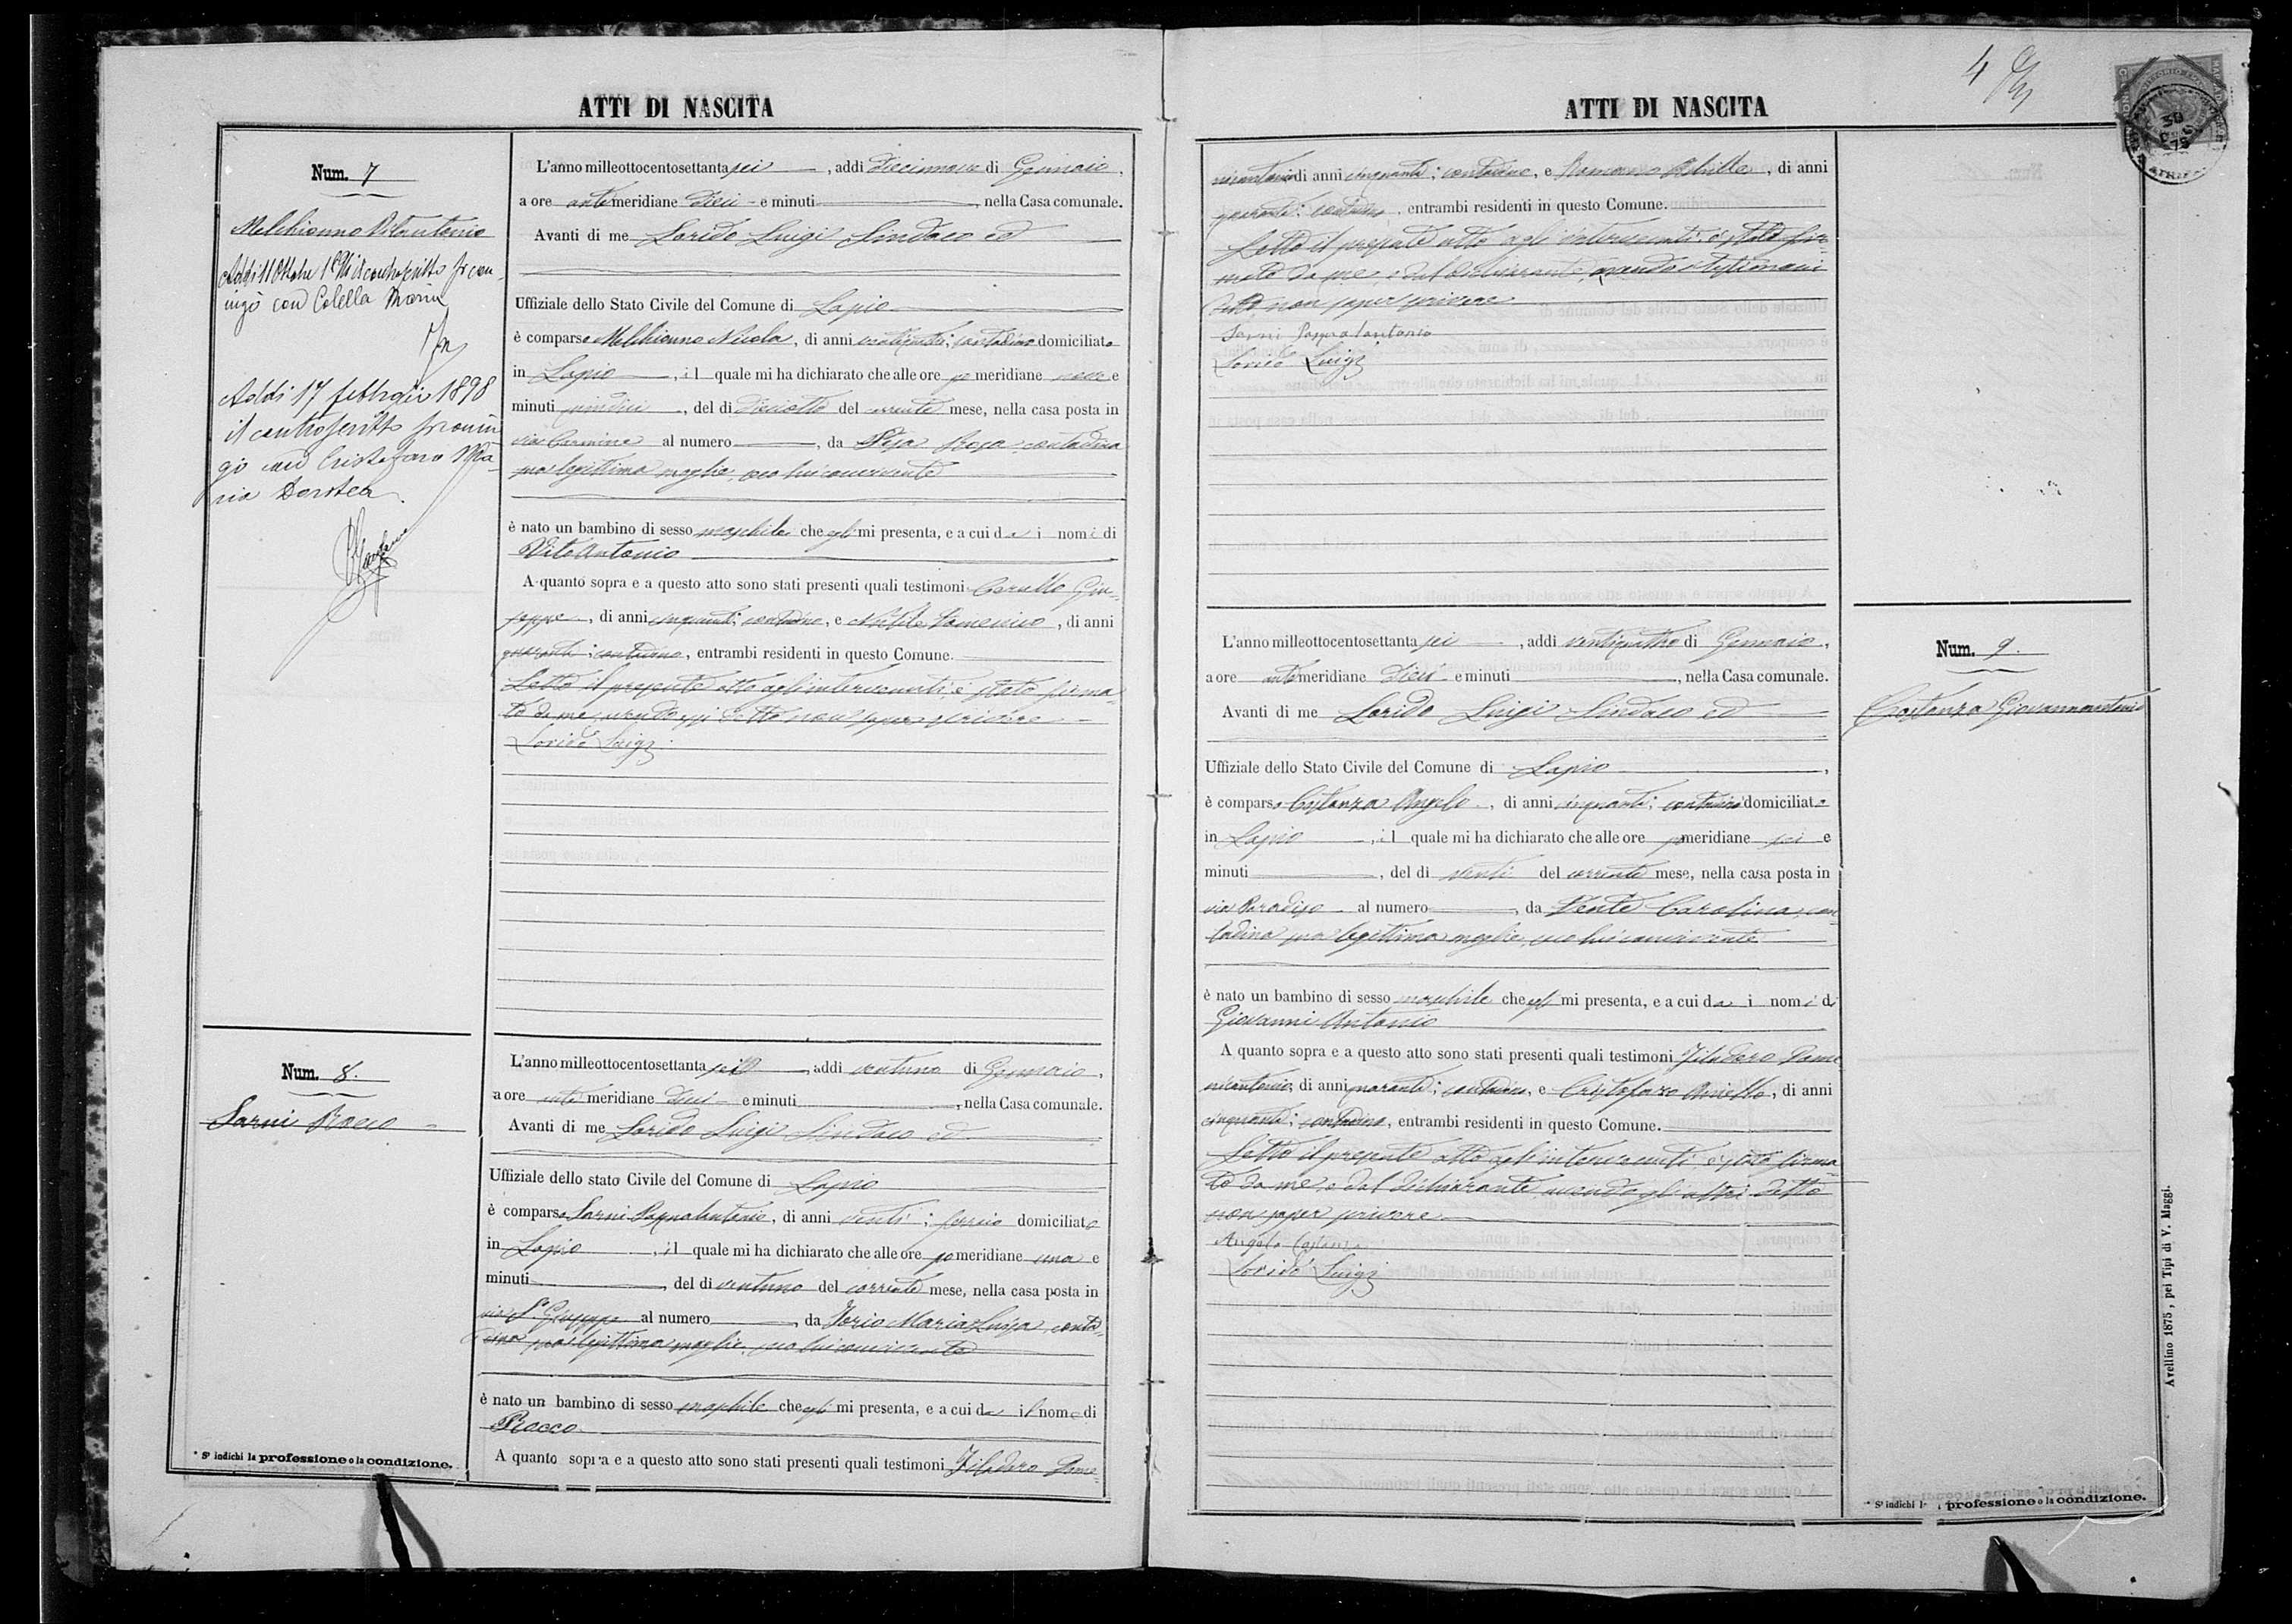 ATTI DI NASCITA
Num. 7
Melchionno Vitantonio
Addì 11 Ottobre il controscritto si con-
iugò con Colella Maria
Addì 17 febbraio 1898
il controscritto si coniu
gò con Cristofaro Ma-
ria Dorotea
L'anno milleottocentosettantasei, addì diecinnove di Gennaio,
a ore antemeridiane dieci e minuti, nella Casa comunale.
Avanti di me Lorido Luigi Sindaco ed
Uffiziale dello Stato Civile del Comune di Lapio
è comparso Melchionno Nicola, di anni, contadino domiciliato
in Lapio, il quale mi ha dichiarato che alle ore pomeridiane nove e
minuti quindici, del dì dieciotto del corrente mese, nella casa posta in
via Carmine al numero, da Rosa contadina
sua legittima moglie, seco lui convivente
è nato un bambino di sesso maschile che egli mi presenta, e a cui dà i nomi di
Vito Antonio
A quanto sopra e a questo atto sono stati presenti quali testimoni Carullo Giu-
seppe, di anni cinquanta, contadino, e Domenico, di anni
quaranta, contadino, entrambi residenti in questo Comune.
Letto il presente atto agli intervenuti è stato firma
to da me, avendo essi detto non saper scrivere
Lorido Luigi
Num. 8.
Sarni Rocco
L'anno milleottocentosettantasei, addì ventuno di Gennaio,
a ore antemeridiane dieci e minuti, nella Casa comunale.
Avanti di me Lorido Luigi Sindaco ed
Uffiziale dello stato Civile del Comune di Lapio
è comparso Sarni Pasqualantonio, di anni venti; ferraio domiciliato
in Lapio, il quale mi ha dichiarato che alle ore pomeridiane una e
minuti, del dì ventuno del corrente mese, nella casa posta in
via S. Giuseppe al numero, da Iorio Maria Luisa, conta-
dina sua legittima moglie, seco lui convivente
è nato un bambino di sesso maschile che egli mi presenta, e a cui dà il nome di
Rocco
A quanto sopra e a questo atto sono stati presenti quali testimoni Filadoro Dome-
* Si indichi la professione o la condizione.
4
ATTI DI NASCITA
nicantonio di anni cinquanta; contadino, e Romano Achille, di anni
quaranta; contadino, entrambi residenti in questo Comune.
Letto il presente atto agli intervenuti è stato fir-
mato da me, e dal dichiarante, avendo i testimoni
detto non saper scrivere
Sarni Pasqualantonio
Lorido Luigi
L'anno milleottocentosettantasei, addì ventiquattro di Gennaio,
a ore antemeridiane dieci e minuti, nella Casa comunale.
Avanti di me Lorido Luigi Sindaco ed
Uffiziale dello Stato Civile del Comune di Lapio,
è comparso Costanza Angelo, di anni cinquanta; contadino domiciliato
in Lapio, il quale mi ha dichiarato che alle ore pomeridiane sei e
minuti, del dì venti del corrente mese, nella casa posta in
via Paradiso al numero, da Vente Carolina, con-
tadina sua legittima moglie, seco lui convivente
è nato un bambino di sesso maschile che egli mi presenta, e a cui dà i nomi di
Giovanni Antonio
A quanto sopra e a questo atto sono stati presenti quali testimoni Filadoro Dome
nicantonio, di anni; contadino, e Cristofaro Aniello, di anni
cinquanta; contadino, entrambi residenti in questo Comune.
Letto il presente atto agli intervenuti è stato firma-
to da me, e dal dichiarante, avendo gli altri detto
non saper scrivere
Angelo Costanza
Lorido Luigi
Num. 9.
Costanza Giovannantonio
Avellino 1875, pei Tipi di V. Maggi.
* Si indichi la professione o la condizione.